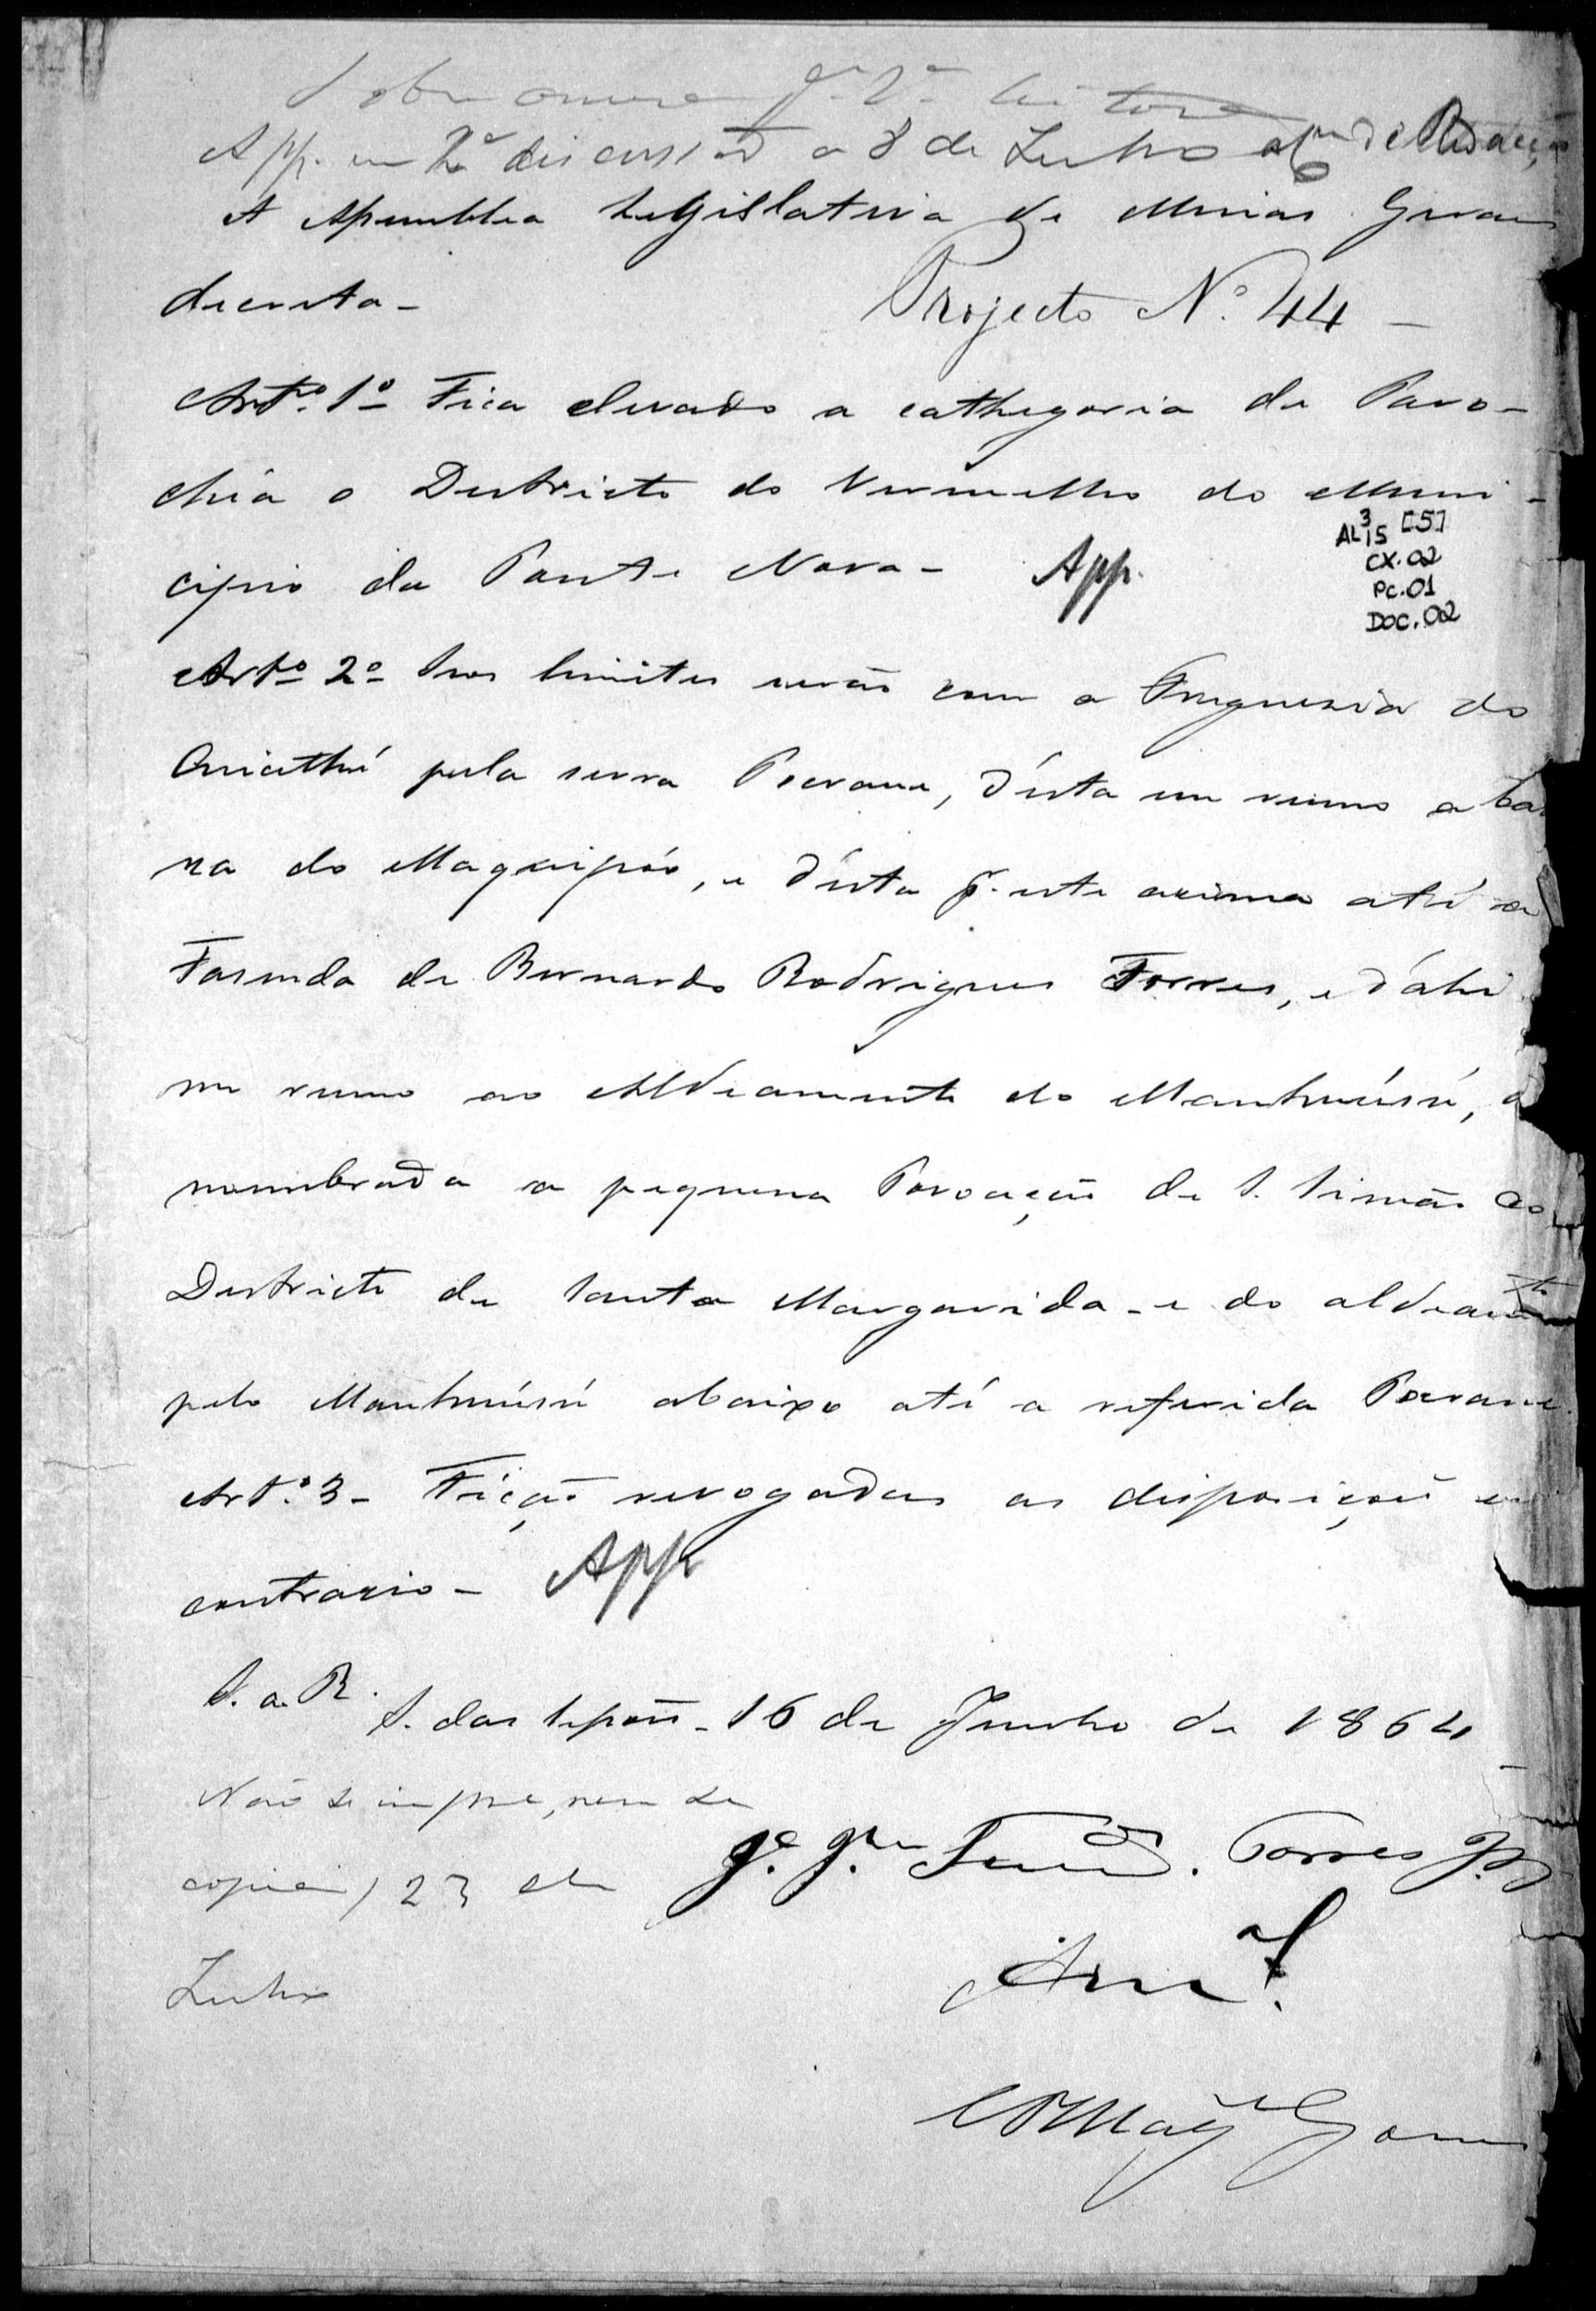 App. em 2ª discussão a 8 de Julho de Redacção
A Assemblea Legislativa de Minas Geraes
decreta -
Projecto Nº 44 -
Artº. 1º Fica elevado a cathegoria de Paro-
chia o Districto do Vermelho do Muni-
cipio da Ponte Nova - App.
AL 3 15 [5]
CX. 02
PC. 01
DOC. 02
Artº 2º Seos limites serão com a Freguezia do
pela serra Pocrane, d'esta em rumo a bar
ra do Maquipóo, e d'esta p. este acima até a
Fazenda de Bernardo Rodrigues Torres, e d'ahi
em rumo ao Aldeamento do Manhuússú,
a pequena Povoação de S. Simão ao
Districto de Santa Margarida - e do aldeamto
pelo Manhuússú abaixo até a referida Pocrane.
Artº. 3 - Ficão revogadas as disposiçoes em
contrario - App
S. a R.
S. das Sessões - 16 de Junho de 1864
Não se imprime, nem se
copia, 23 de
Julho
Torres
Gomes